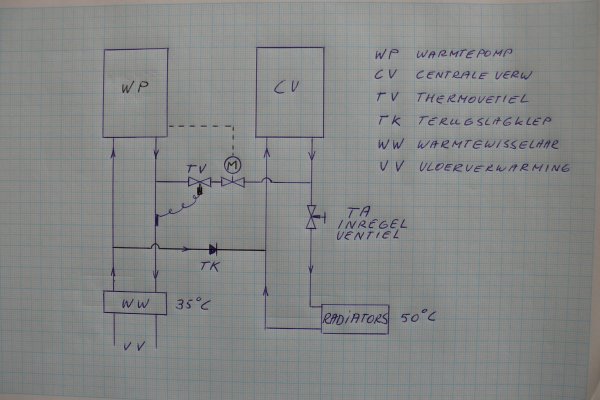 WP
CV
WP WARMTEPOMP
CV CENTRALE VERW
TV THERMOVETIEL
TK TERUGSLAGKLEP
WW WARMTEWISSELAAR
VV VLOERVERWARMING
TV
M
TA
INREGEL
VENTIEL
TK
WW 35°C
RADIATORS 50°C
VV